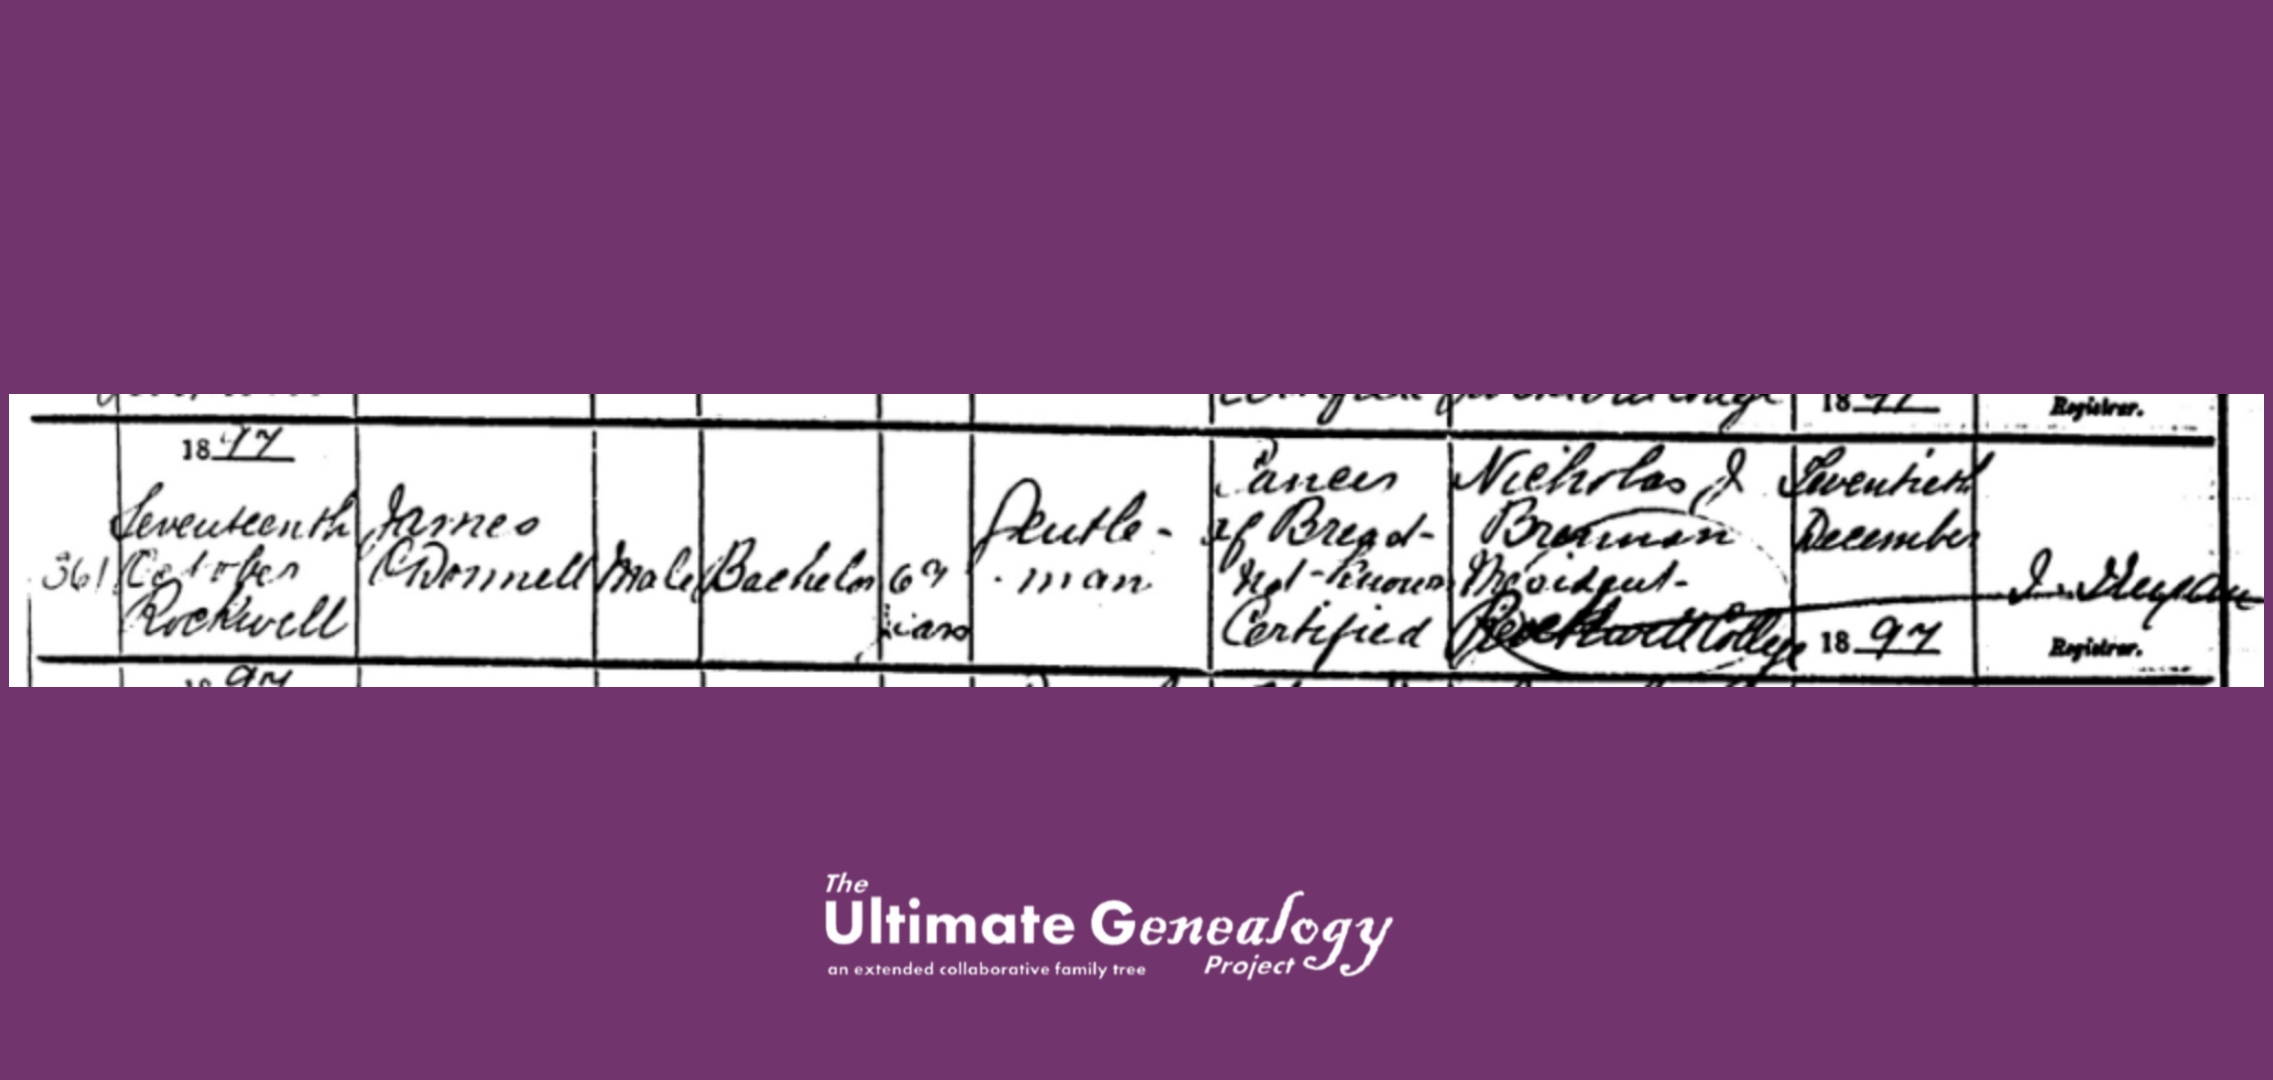 Registrar.
361
1897
Seventeenth
October
Rockwell
James
O'Donnell
Male
Bachelor
67
years
Gentle-
man
Cancer
of Breast
Not Known
Certified
Nicholas J
Brennan
President
Rockwell College
Twentieth
December
1897
Registrar.
1897
The
Ultimate Genealogy
Project
an extended collaborative family tree